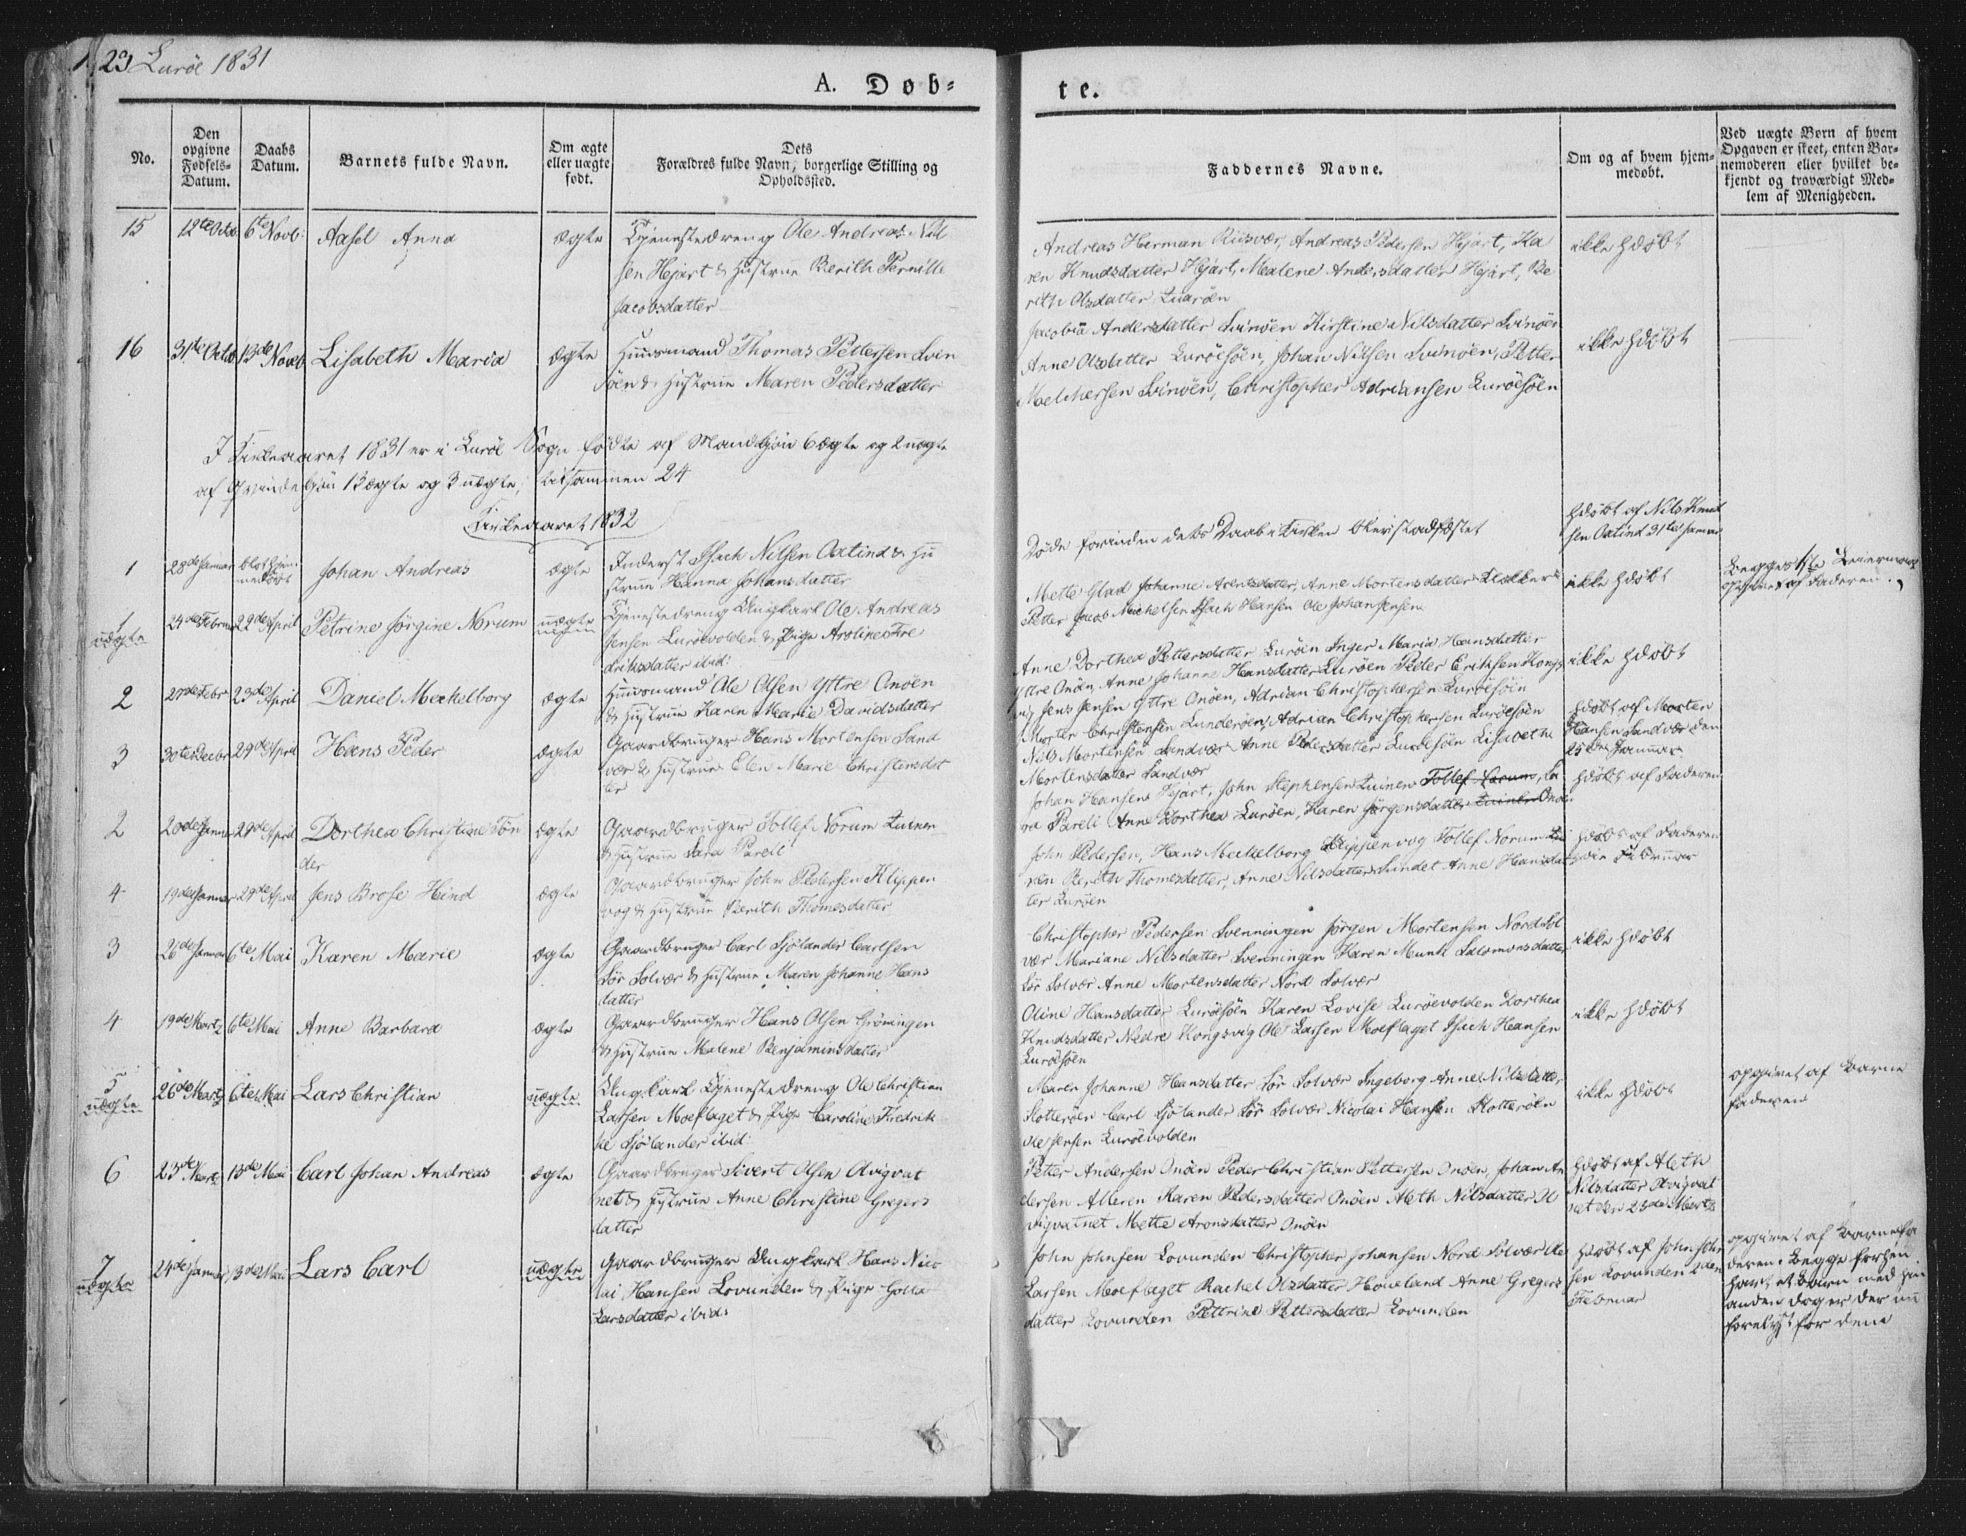 23 Lurøe 1831
A. Døb-
te.
No.
Den opgivne Fødsels-Datum.
Daabs Datum.
Barnets fulde Navn.
Om ægte eller uægte født.
Dets Forældres fulde Navn, borgerlige Stilling og Opholdssted.
Faddernes Navne.
Om og af hvem hjem-medøbt.
Ved uægte Børn af hvem Opgaven er skeet, enten Bar-nemoderen eller hvilket be-kjendt og troværdigt Med-lem af Menigheden.
15 12te Octob 6te Novb: Aasel Anna ægte Tjenestedreng Ole Andreas Nil
sen Hjart & Hustrue Berith Pernille
Jacobsdatter
Andreas Herman Riisvær, Andreas Pedersen Hjart, Ka
ren Knudsdatter Hjart, Malene Andersdatter Hjart, Be
rith Olsdatter Luroen
ikke Hdøbt
16 31te Octob 13de Novb Lisabeth Maria ægte Huusmand Thomas Pettersen Svin
øen & Hustrue Maren Pedersdatter
Jacobia Andersdatter Svinøen Kirstine Nilsdatter Svinøen
Anne Olsdatter Lurøesøen, Johan Nilsen Svinøen, Petter
Melchersen Svinøen, Christopher Adriansen Lurøesøen
ikke Hdøbt
I Kirkeaaret 1831 er i Lurøe Sogn fødte af Mandkjøn 6 ægte og 2 uægte
af Qvindekjøn 13 ægte og 3 uægte; tilsammen 24
Kirkeaaret 1832
1 28de Januar blot hjem
medøbt Johan Andreas ægte Inderst Isach Nilsen Oxtind & Hu
strue Hanna Johansdatter
Døde forinden dets Daab i Kirken blev stadfæstet
Hdøbt af Nils Knud
sen Oxtind 31te Januar
1
uægte 24de Februar 22de April Petrine Jørgine Norum uægte Tjenestedreng Ungkarl Ole Andreas
Jensen Lurøevolden & Pige Aroline Fre
driksdatter ibid:
Mette Glad Johanne Arentsdatter, Anne Mortensdatter
Petter Jacob Michelsen Isach Hansen Ole Johan Jensen
ikke Hdøbt
Begges 1te Leiermaal
opgivet af Faderen
2 27de Febr 23de April Daniel Mekelborg ægte Huusmand Ole Olsen Yttre Onøen
& Hustrue Karen Marie Davidsdatter
Anne Dorthea Pettersdatter Lurøen Inger Maria Hansdatter
Yttre Onøen, Anne Johanne Hansdatter Lurøen Peder Eriksen Kongs
vig Jens Jensen Yttre Onøen, Adrian Christophersen Lurøesøen
ikke Hdøbt
3 30te Decbr 29de April Hans Peder ægte Gaardbruger Hans Mortensen Sand
vær & Hustrue Elen Marie Christensdat
ter
Morten Christensen Lunderøen, Adrian Christophersen Lurøesøen
Nils Mortensen Sandvær Anne Pedersdatter Lurøesøen Lisabeth
Mortensdatter Sandvær
Hdøbt af Morten
Hansen Sandvær den
25de Januar
2 20de Januar 29de April Dorthea Christine Tøn
der ægte Gaardbruger Tollef Norum Luinen
& Hustrue Sara Pareli
Johan Hansen Hjart, John Stephensen Luinen Tollef Norum, Sa
ra Pareli Anne Dorthea Lurøen, Karen Jørgensdatter Luinen Onøen
Hdøbt af Faderen
4 19de Januar 29de April Jens Brose Hind ægte Gaardbruger John Pedersen Klippen
vog & Hustrue Berith Thomesdatter
John Pedersen, Hans Mechelborg Klippenvog Tollef Norum Lui
nen Berith Thomesdatter, Anne Nilsdatter Sundet Anne Hansdat
ter Lurøen
Hdøbt af Faderen
Februar
3 26de Januar 6te Mai Karen Marie ægte Gaardbruger Carl Sjølander Carlsen
Sør Solvær & Hustrue Maren Johanne Hans
datter
Christopher Pedersen Svenningen Jørgen Mortensen Nord Sol
vær Mariane Nilsdatter Svenningen Karen Munk Salomonsdatter
Sør Solvær Anne Mortensdatter Nord Solvær
ikke Hdøbt
4 19de Martz 6te Mai Anne Barbara ægte Gaardbruger Hans Olsen Grøningen
& Hustrue Malene Benjaminsdatter
Oline Hansdatter Lurøesøen Karen Lovise Lurøevolden Dorthea
Knudsdatter Nedre Kongsvig Ole Larsen Moeflaget Isach Hansen
Lurøesøen
ikke Hdøbt
5
uægte 26de Martz 6te Mai Lars Christian uægte Ungkarl Tjenestedreng Ole Christian
Larsen Moeflaget & Pige Caroline Fredrik
ke Sjølander ibid:
Maren Johanne Hansdatter Sør Solvær Ingeborg Anne Nilsdatter
Slotterøen Carl Sjølander Sør Solvær Nicolai Hansen Slotterøen
Ole Jensen Lurøevolden
ikke Hdøbt
opgivet af Barne
faderen
6 23de Martz 13de Mai Carl Johan Andreas ægte Gaardbruger Sivert Olsen Qvigvat
net & Hustrue Anne Christine Gregers
datter
Petter Andersen Onøen Peder Christian Pettersen Onøen, Johan An
dersen Alteren Karen Pedersdatter Onøen Aleth Nilsdatter Q
vigvatnet Mette Aronsdatter Onøen
Hdøbt af Aleth
Nilsdatter Qvigvat
net den 25de Martz
7
uægte 24de Januar 13de Mai Lars Carl uægte Gaardbruger Ungkarl Hans Nico
lai Hansen Lovunden & Pige Golla
Larsdatter ibid:
John Johnsen Lovunden Christopher Johansen Nord Solvær Ole
Larsen Moeflaget Rachel Olsdatter Houeland Anne Gregers
datter Lovunden Petterine Pettersdatter Lovunden
Hdøbt af John John
sen Lovunden 2den
Februar
opgivet af Barnefa
deren: Begge forhen
havt et Barn med hin
anden dog er der nu
forelyst for dem